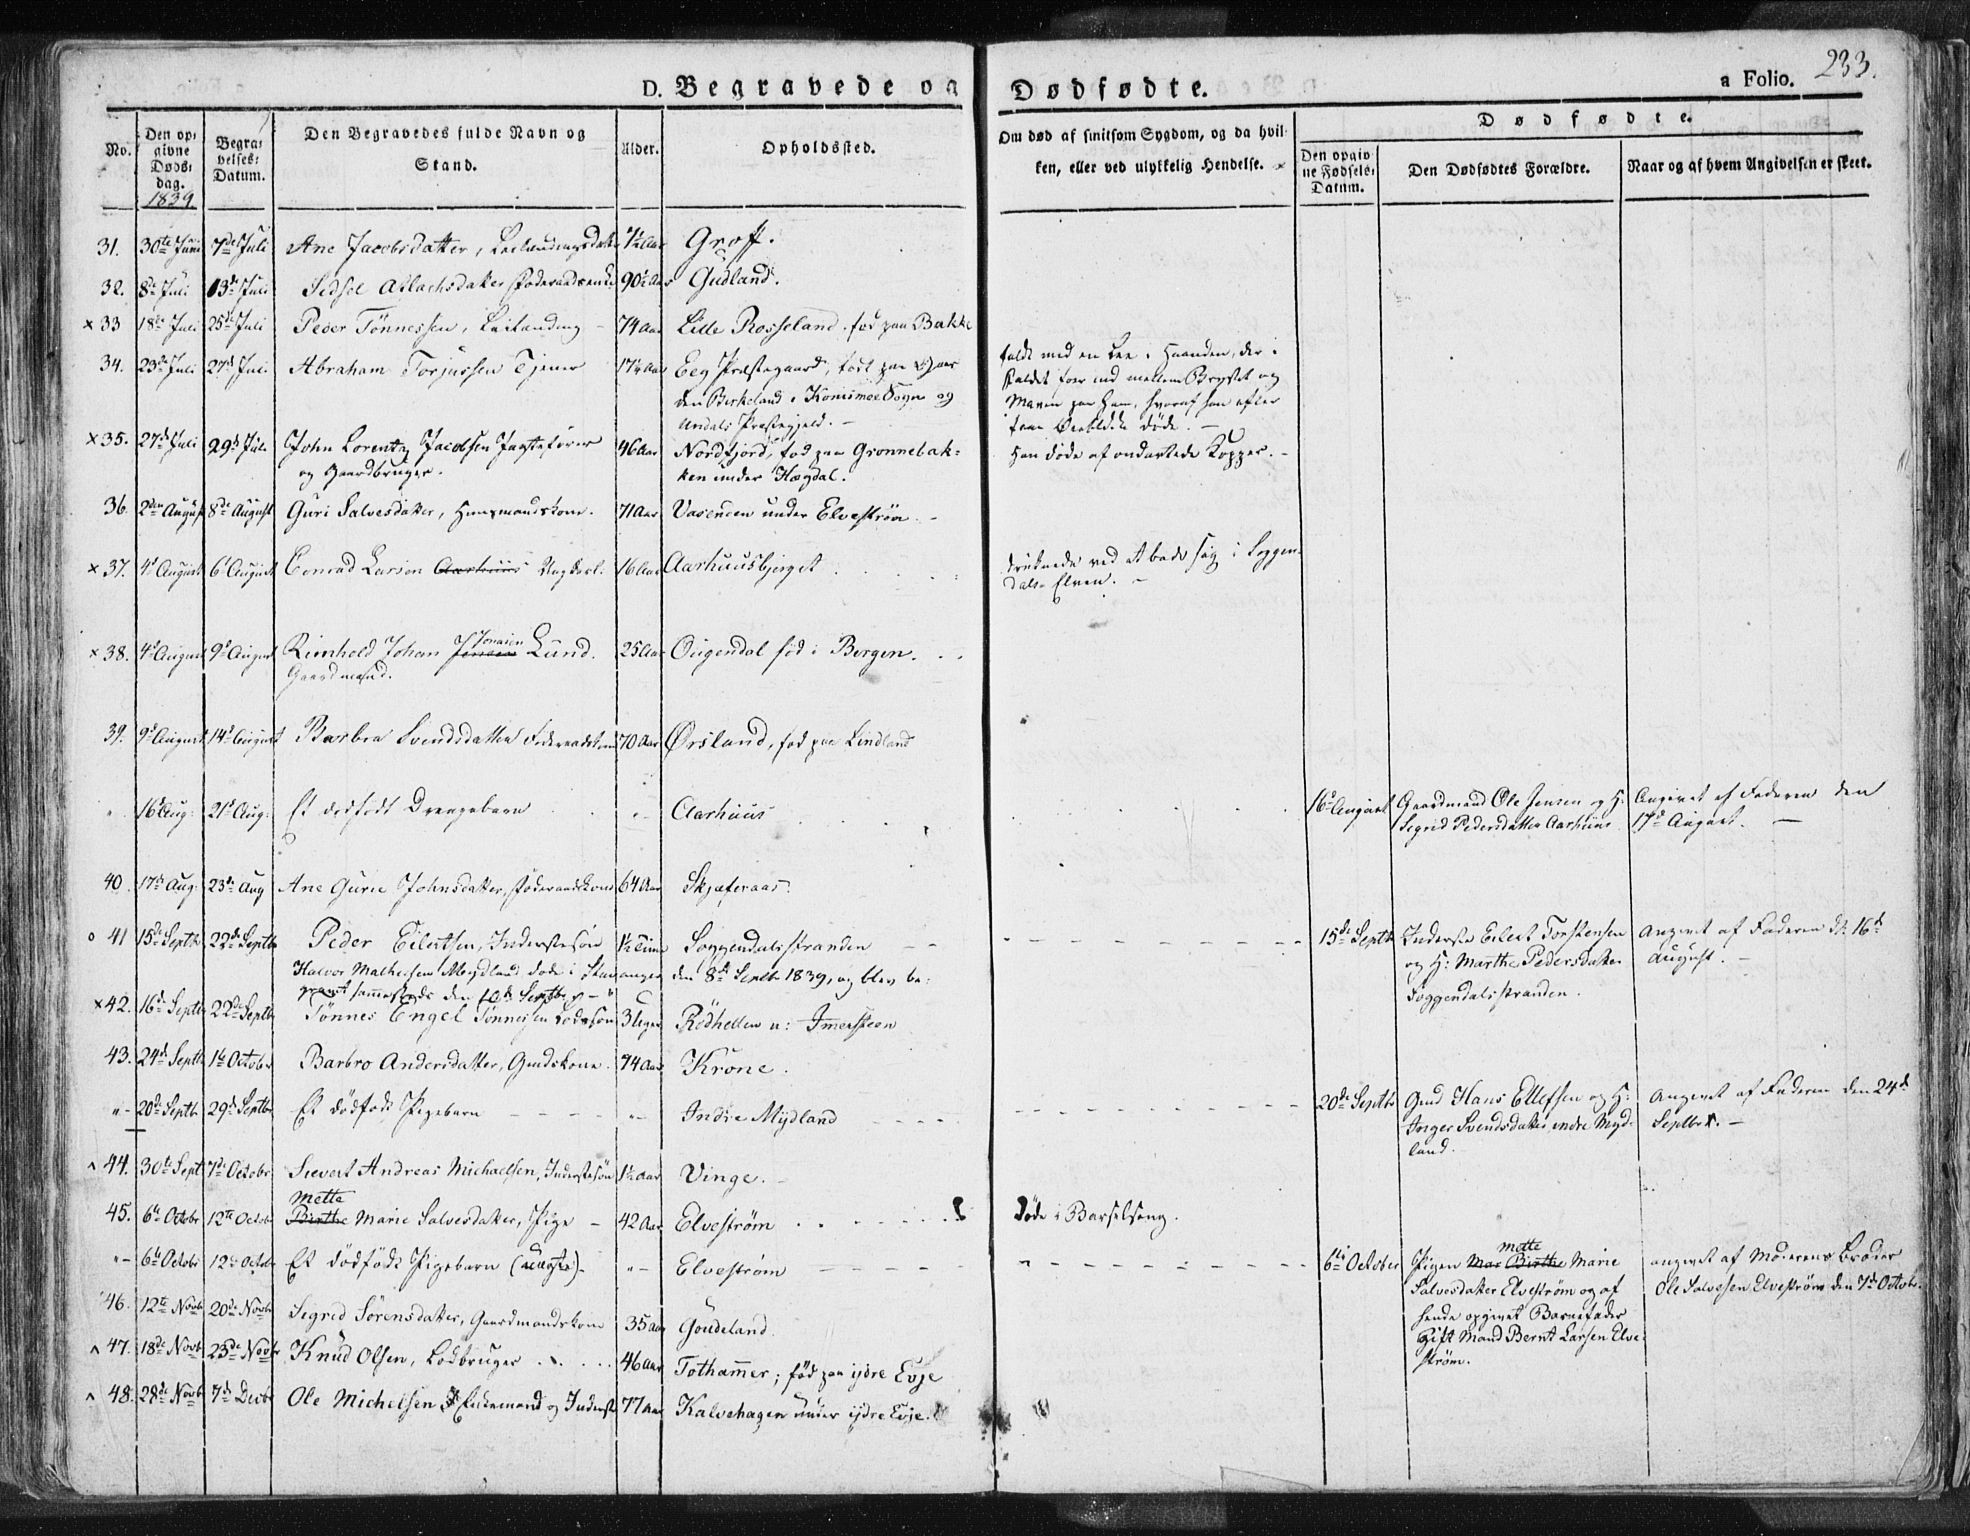 233.
D. Begravede og Dødfødte. a Folio.
No. Den opgivne Dødsdag. Begravelses-Datum. Den Begravedes fulde Navn og Stand. Alder. Opholdssted. Om død af smitsom Sygdom, og da hvilken, eller ved ulykkelig Hendelse. Dødfødte. Den opgivne Fødsels-Datum. Den Dødfødtes Forældre. Naar og af hvem Angivelsen er skeet.
1839
31. 30te Juni 7de Juli Ane Jacobsdatter, Leilændingsdatter Aar Groff.
32. 8de Juli 13de Juli Sidsel AsLachsdatter Føderaadsenke 90½ Aar Gudland.
× 33 18de Juli 25de Juli Peder Tönnessen, Leilænding – 74 Aar Lille Rosseland, fød paa Bakke
34. 23de Juli 27de Juli Abraham Torjussen Tjener 17½ Aar Eeg Præstegaard, født paa
den Birkeland i Konismoe Sogn og
Undals Præstegjeld. –
faldt med en Lee i Haanden, der i
Faldet foer ind mellem Brystet og
Maven paa ham, hvoraf han efter
faae Øieblikke døde. –
× 35. 27de Juli 29de Juli John Lorentz Jacobsen Jagtefører 46 Aar Nordfjord, fød paa Grønnebak-
og Gaardbruger. ken under Hægdal.
Han døde af ondartede Kopper. –
36. 2den August 8de August Guri Salvesdatter, Huusmandskone. 71 Aar Vasenden under Elvestrøm. –
× 37. 4de August 6te August Conrad Larsen Aarhuus Ungkarl. 16 Aar Aarhuusbjerget
druknede ved at bade sig i Soggen-
dals-Elven. –
× 38. 4de August 9de August Reinhold Johan Jonasen Jonasen Lund. 25 Aar Ougendal fød i Bergen.
Gaardmand.
39. 9de August 14de August Barbra Svendsdatter Føderaadskone 70 Aar Ørsland, fød paa Lindland
" 16de Aug: 21de Aug: Et dødfødt Drengebarn "– Aarhuus
16de August Gaardmand Ole Jensen og H: Angivet af Faderen den
Segrid Pedersdatter Aarhuus 17de August. –
40. 17de Aug. 23de Aug Ane Gurie Johnsdatter, Føderaadskone 64 Aar Skjæferaas.
o 41 15de Septbr 22de Septbr Peder Eilertsen, Inderstesøn 1½ Time Soggendalsstranden
15de Septbr Inderste Eilert Torstensen Angivet af Faderen d: 16de
og H: Marthe Pedersdatter August. –
Soggendalsstranden.
Halvor Matheisen Mydland døde i Stavanger den 8de Septbr 1839, og blev be-
gravet sammesteds den 10de Septbr
× 42. 16de Septbr 22de Septbr Tönnes Engel Tönnessen Lodssøn 3 Uger Rödhellen u: Imersteen
43. 24de Septbr 1te October Barbro Andersdatter, Gmdskone. 74 Aar Krone.
"– 20de Septb. 29de Septbr Et dödfödt Pigebarn "– Indre Mydland
20de Septbr Gmd Hans Ellefsen og H: Angivet af Faderen den 24de
Inger Svendsdatter indre Myd- Septbr. –
land.
^ 44. 30te Sept 7de Octobr Sievert Andreas Michaelsen, Inderstesøn 1½ Aar Vinge. –
Mette
45. 6te Octobr 12te Octobr Birthe Marie Salvesdatter, Pige – 42 Aar Elveströmm døde i Barselseng.
"– 6te Octobr 12te Octobr Et dödfödt Pigebarn (uægte). "– Elvestrøm
mette
6te October Pigen Mar Birthe Marie angivet af Moderens Broder
Salvesdatter Elvestrøm og af Ole Salvesen Elvestrøm den 7de Octobr.
hende opgivet Barnefader
Gift Mand Bernt Larsen Elve-
strøm.
46. 12te Novb 20de Novb Segrid Sørensdatter, Gaardmandskone 35 Aar Goudeland
^ 47. 18de Novb 23de Novbr Knud Olsen, Lodbruger 46 Aar Tothammer; fød paa ydre Evje
^ 48. 28de Novb 7de Decbr Ole Michelsen Enkemand og Inderst 77 Aar Kalvehagen under ydre Evje.